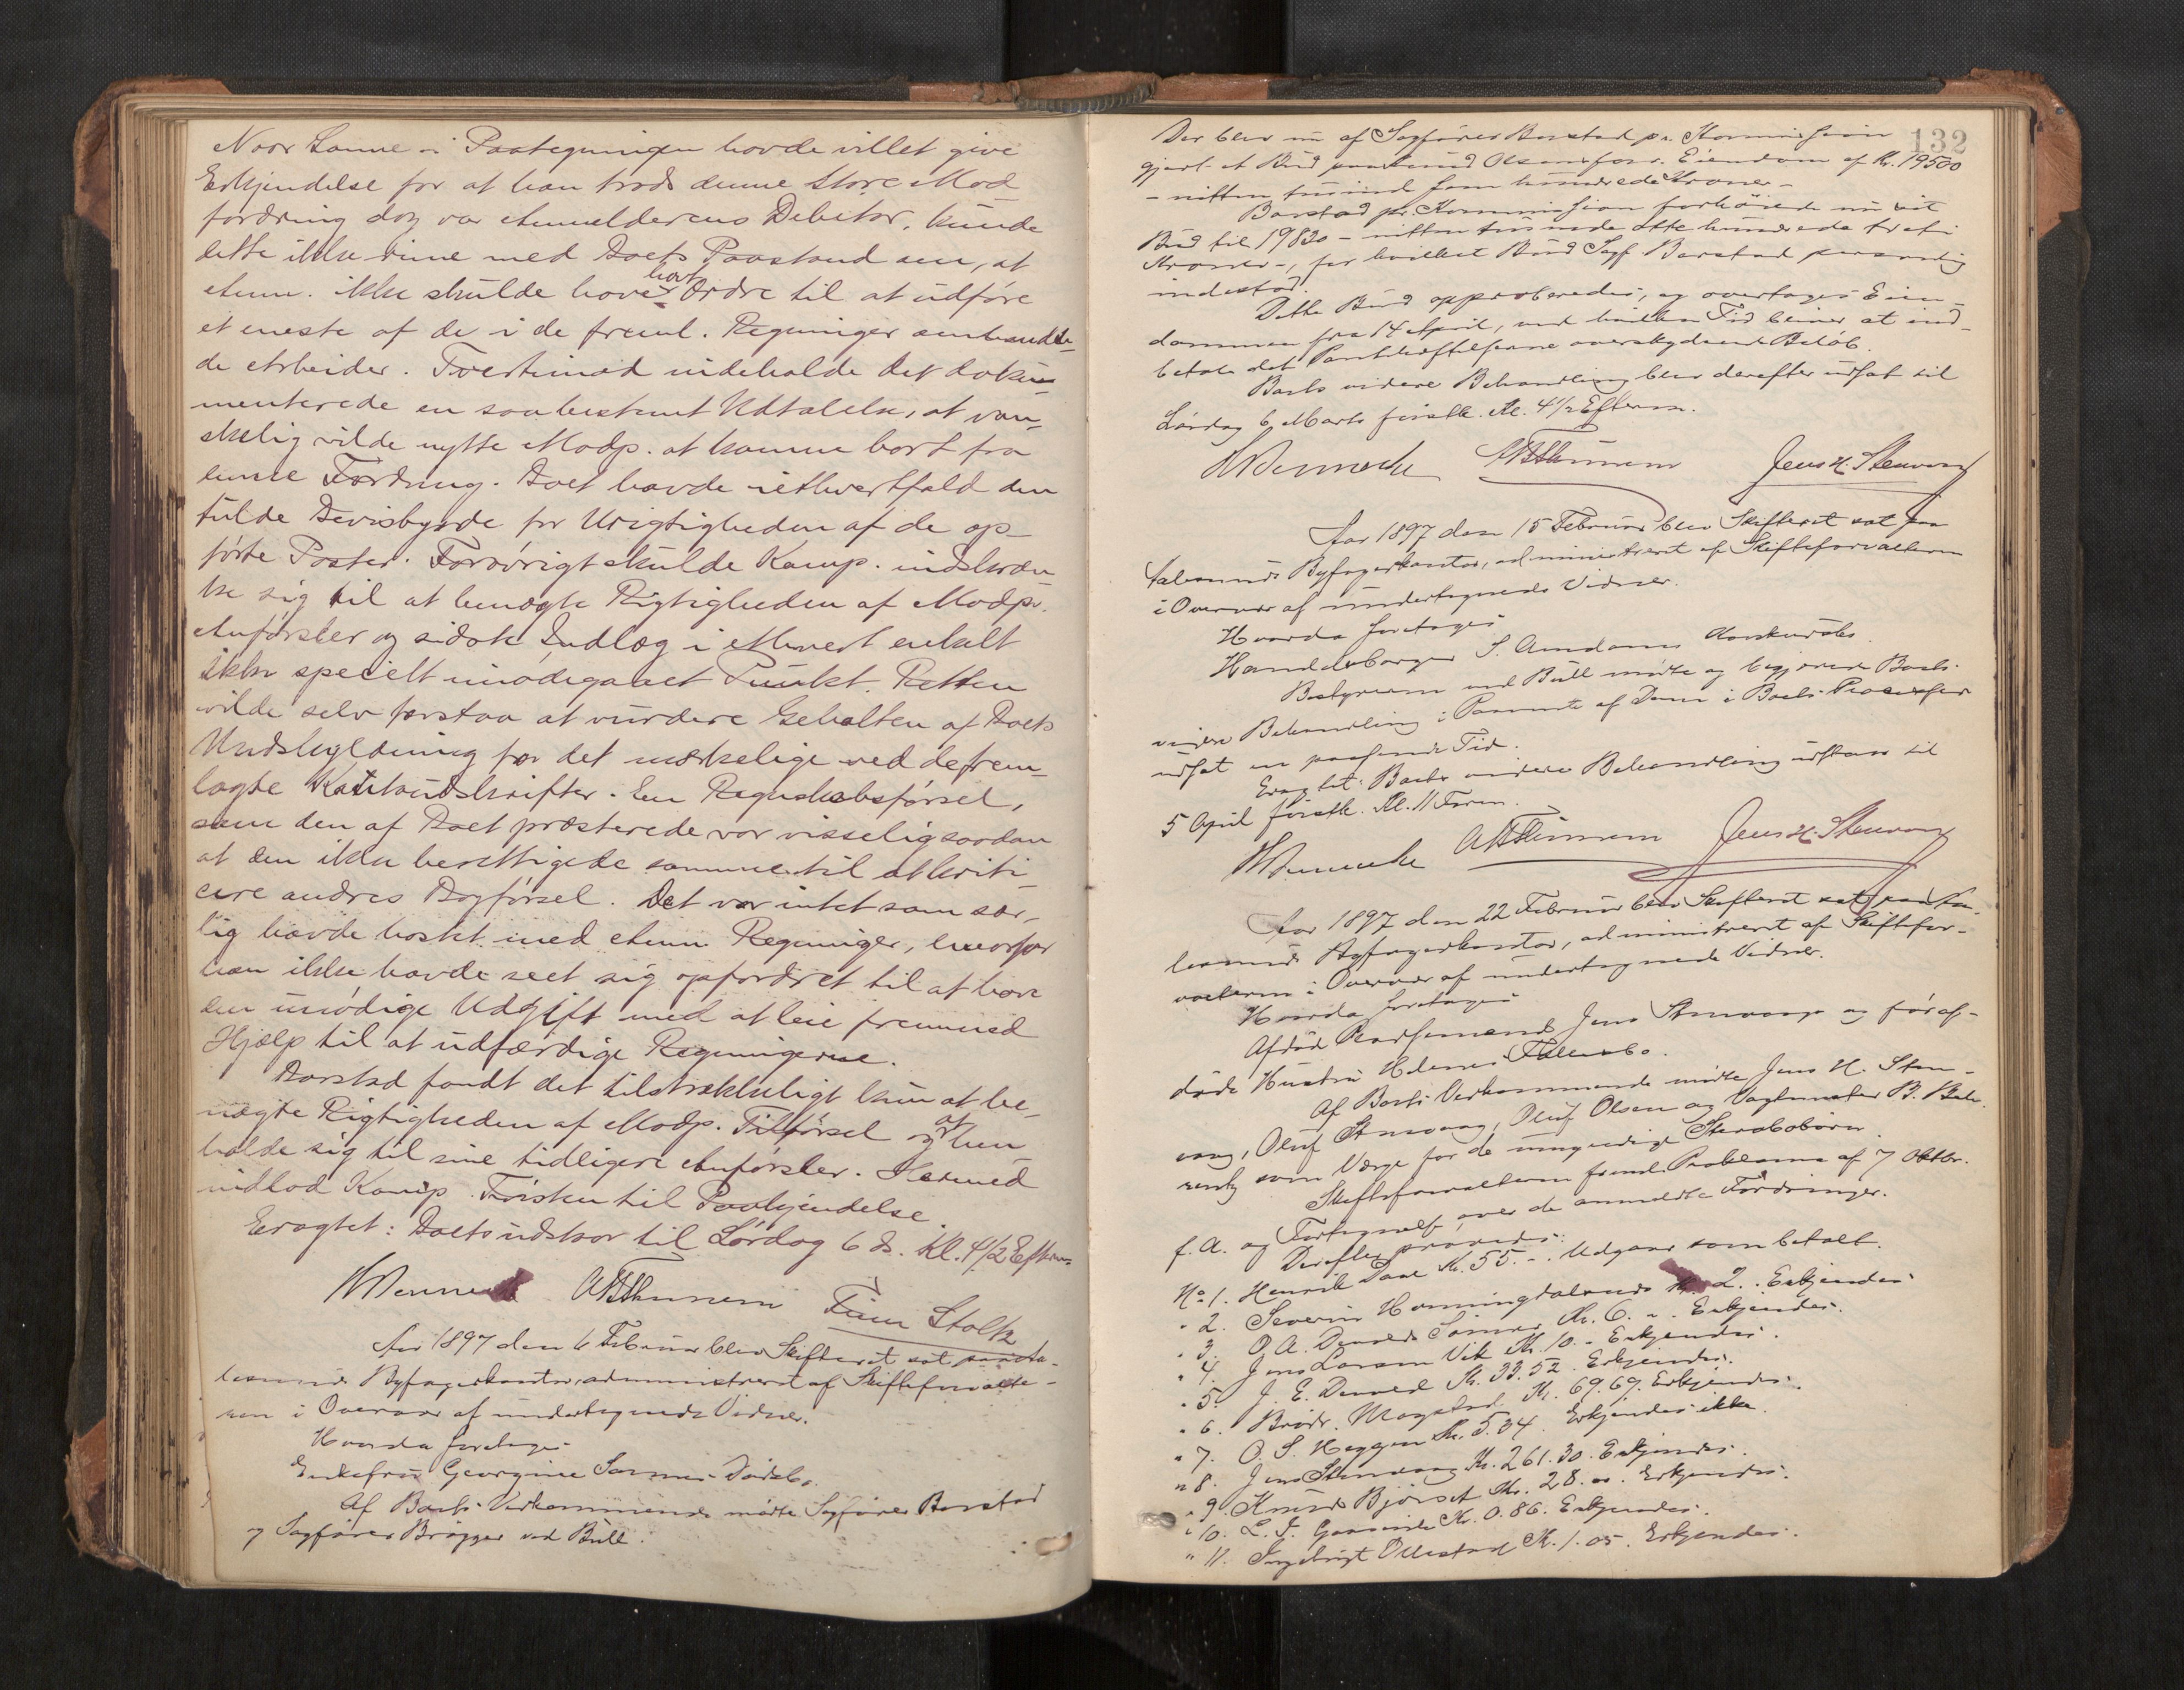 Naar Sanne i Paategningen havde villet give
Erkjendelse for at han trods denne store Mod
fordring dog var Anmelderens Debitor, kunde
dette ikke rime med Boets Paastand om, at
Anm. ikke skulde have havt Ordre til at udføre
et eneste af de i de freml. Regninger omhandle-
de Arbeider. Tvertimod indeholde det doku-
menterede en saa bestemt Udtalelse, at van-
skelig vilde nytte Modp. at komme bort fra
Fordring. Boet havde i ethvertfald den
fulde Bevisbyrde for Urigtigheden af de op-
førte Poster. Forøvrigt skulde Komp. indskræn-
ke sig til at benægte Rigtigheden af Modp.
Anførsler og sidste Indlæg i ethvert enkelt
ikke specielt imødegaaet Punkt. Retten
vilde selv forstaa at vurdere Gehalten af Boets
Undskyldning for det mærkelige ved de frem-
lagte Kontoudskrifter. En Regnskabsførsel,
som den af Boet præsterede var visselig saadan
at den ikke berettigede samme til at kriti-
cere andres Bogførsel. Det var intet som sær-
lig havde hastet med Anm. Regninger, hvorfor
han ikke havde seet sig opfordret til at have
den unødige Udgift med at leie fremmed
Hjælp til at udfærdige Regningerne.
Barstad fandt det tilstrækkeligt kun at be-
nægte Rigtigheden af Modp. Tilførsel og at hen
holde sig til sine tidligere Anførsler. Hermed
indlod Komp. Tvisten til Paakjendelse.
Eragtet: Boet udstaar til Lørdag 6 ds. Kl. 4 1/2 Efterm.
Finn Stoltz
Aar 1897 den 6 Februar blev Skifteret sat paa Aa-
lesunds Byfogedkontor, administreret af Skifteforvalte-
ren i Overvær af undertegnede Vidner.
Hvorda foretoges
Enkefru Georgine Sannes Dødsbo.
Af Boets Vedkommende mødte Sagfører Barstad
og Sagfører Brøgger ved Bull.
132
Der blev nu af Sagfører Barstad pr. Kommission
gjort et Bud paa Olsens Eiendom af Kr. 19500
- nitten tusind fem hundrede Kroner -
Barstad pr. Kommission forhøiede nu sit
Bud til 19830 - nitten tusinde otte hundrede treti
Kroner -, for hvilket Bud Sagf. Barstad personlig
indestod.
Dette Bud approberedes, og overtages Eien-
dommen fra 14 April, ved hvilken Tid bliver at ind-
betale det Pantehæftelserne overskydende Beløb.
Boets videre Behandling blev derefter udsat til
Lørdag 6 Marts førstk. Kl. 4 1/2 Efterm.
Jens H. Stenvaag
Aar 1897 den 15 Februar blev Skifteret sat paa
Aalesunds Byfogedkontor, administreret af Skifteforvalteren
i Overvær af undertegnede Vidner.
Hvorda foretoges
Handelsborger S. Amdams Konkursbo.
Bestyreren ved Bull mødte og begjærede Boets
videre Behandling i Paavente af Dom i Boets Processer
udsat en passende Tid.
Eragtet: Boets videre Behandling udstaar til
5 April førstk. Kl. 11 Form.
Jens H. Stenvaag
Aar 1897 den 22 Februar blev Skifteret sat paa Aa-
lesunds Byfogedkontor, administreret af Skiftefor-
valteren i Overvær af undertegnede Vidner.
Hvorda foretoges
Afdød Jens Stenvaags og før af-
døde Hustru Helenes Fællesbo.
Af Boets Vedkommende mødte Jens H. Sten-
vaag, Oluf Stenvaag, Oluf Olsen og Vagtmester B.
som Værge for de umyndige Stervbobørn.
Skifteforvalteren freml. Proklama af 7 Oktbr.
f. A. og Fortegnelse over de anmeldte Fordringer.
Derefter prøvedes:
No 1. Henrik Dahl Kr. 55.-. Udgaar som betalt.
" 2. Severin Kr. 2. Erkjendes.
" 3. O. A. Devolds Sønner Kr. 6.-. Erkjendes.
" 4. Jens Larsen Vik Kr. 10.- Erkjendes.
" 5. J. E. Devold Kr. 33.52. Erkjendes.
" 6. Brødr. Magstad Kr. 69.69. Erkjendes.
" 7. O. S. Heggen Kr. 5.04. Erkjendes ikke.
" 8. Jens Stenvaag Kr. 261.30. Erkjendes.
" 9. Knud Bjørset Kr. 28.00. Erkjendes.
" 10. L. J. Kr. 0.86. Erkjendes.
" 11. Ingebrigt Kr. 1.05. Erkjendes.